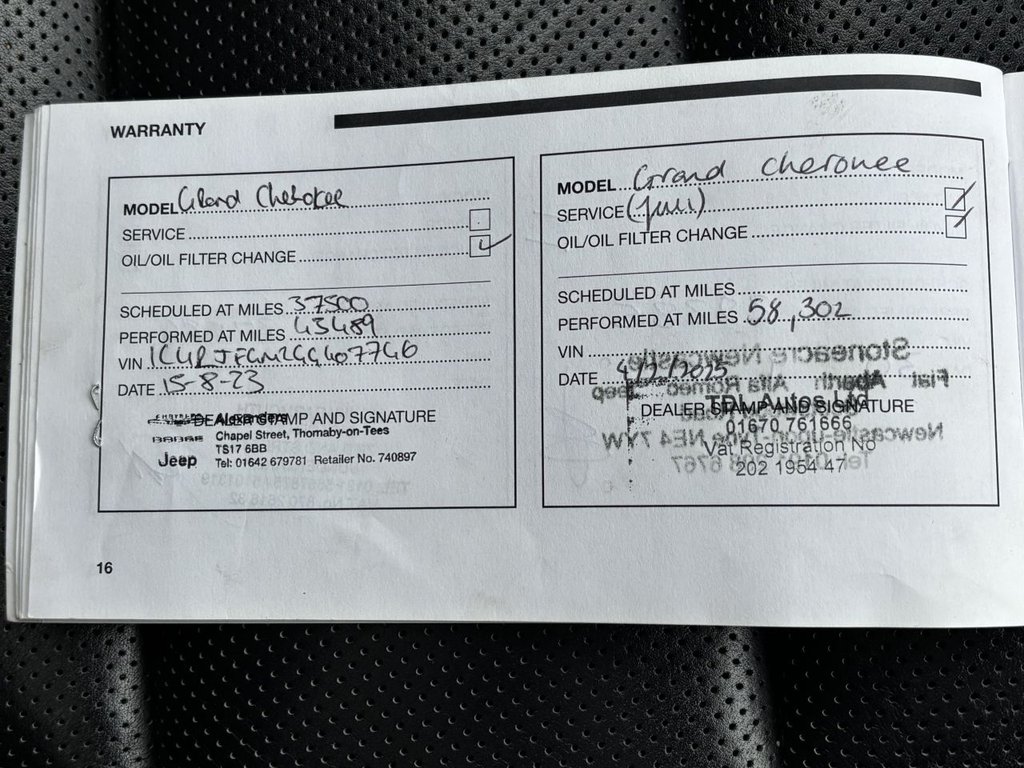 WARRANTY
MODEL Grand Cherokee
SERVICE
OIL/OIL FILTER CHANGE
SCHEDULED AT MILES 37500
PERFORMED AT MILES 43489
VIN
DATE 15-8-23
DEALER STAMP AND SIGNATURE
Alexanders
Chapel Street, Thornaby-on-Tees
DODGE
TS17 6BB
Jeep
Tel: 01642 679781 Retailer No. 740897
MODEL Grand Cheronee
SERVICE (full)
OIL/OIL FILTER CHANGE
SCHEDULED AT MILES
PERFORMED AT MILES 58,302
VIN
DATE 4/2/2025
DEALER STAMP AND SIGNATURE
TDL Autos Ltd
01670 761666
Vat Registration No
202 1954 47
Stoneacre Newcastle
Fiat Abarth Alfa Romeo Jeep
Newcastle-upon-Tyne NE4 7YW
16